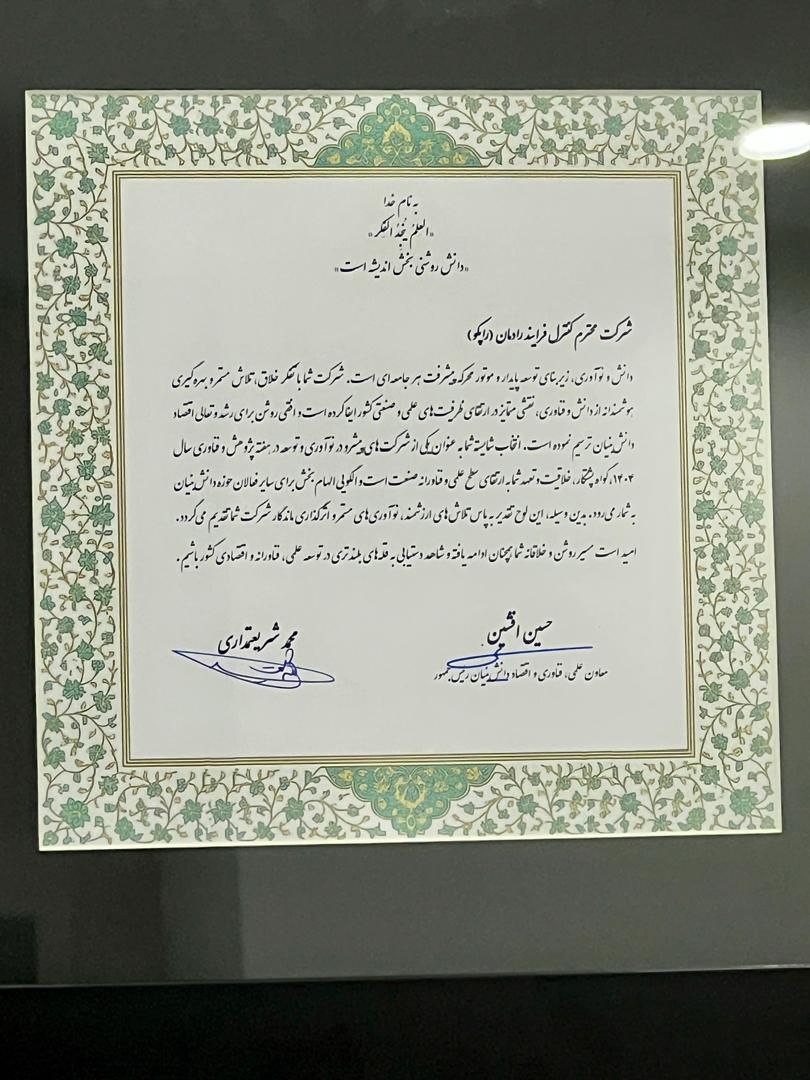 به نام خدا
«العِلمُ یُنجِدُ الفِکر»
«دانش روشنی بخش اندیشه است»
شرکت محترم کنترل فرایند رادمان (راپکو)
دانش و نوآوری، زیربنای توسعه پایدار و موتور محرکه پیشرفت هر جامعه‌ای است. شرکت شما با تفکر خلاق، تلاش مستمر و بهره‌گیری
هوشمندانه از دانش و فناوری، نقشی متمایز در ارتقای ظرفیت‌های علمی و صنعتی کشور ایفا کرده است و افقی روشن برای رشد و تعالی اقتصاد
دانش‌بنیان ترسیم نموده است. انتخاب شایسته شما به عنوان یکی از شرکت‌های پیشرو در نوآوری و توسعه در هفته پژوهش و فناوری سال
۱۴۰۴، گواه پشتکار، خلاقیت و تعهد شما به ارتقای سطح علمی و فناورانه صنعت است و الگویی الهام بخش برای سایر فعالان حوزه دانش‌بنیان
به شمار می‌رود. بدین وسیله، این لوح تقدیر به پاس تلاش‌های ارزشمند، نوآوری‌های مستمر و اثرگذاری ماندگار شرکت شما تقدیم می‌گردد.
امید است مسیر روشن و خلاقانه شما همچنان ادامه یافته و شاهد دستیابی به قله‌های بلندتری در توسعه علمی، فناورانه و اقتصادی کشور باشیم.
حسین افشین
معاون علمی، فناوری و اقتصاد دانش‌بنیان رئیس جمهور
محمد شریعتمداری